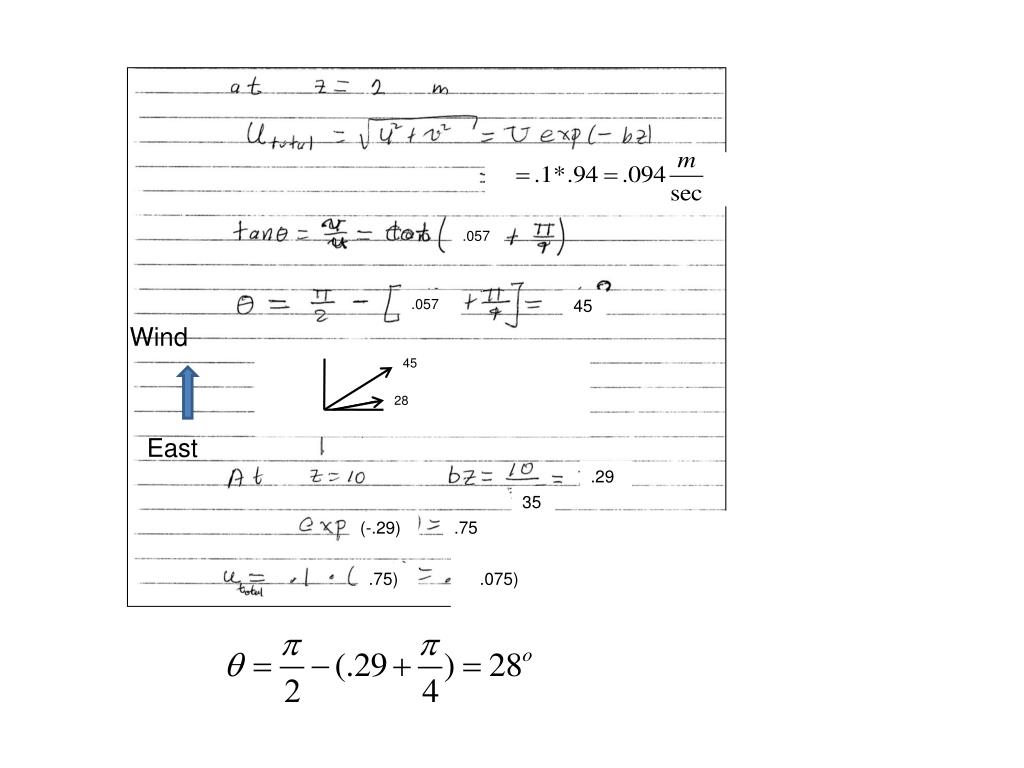 at z = 2 m
U total = √u² + v² = U exp(- bz)
= = .1*.94 = .094 m/sec
tanθ = v/u = cot( .057 + π/4)
θ = π/2 - [ .057 + π/4] = 45°
Wind
45
28
East
At z = 10 bz = 10/35 = .29
exp (-.29) ) = .75
u total = .1 · ( .75) = . .075)
θ = π/2 − (.29 + π/4) = 28°